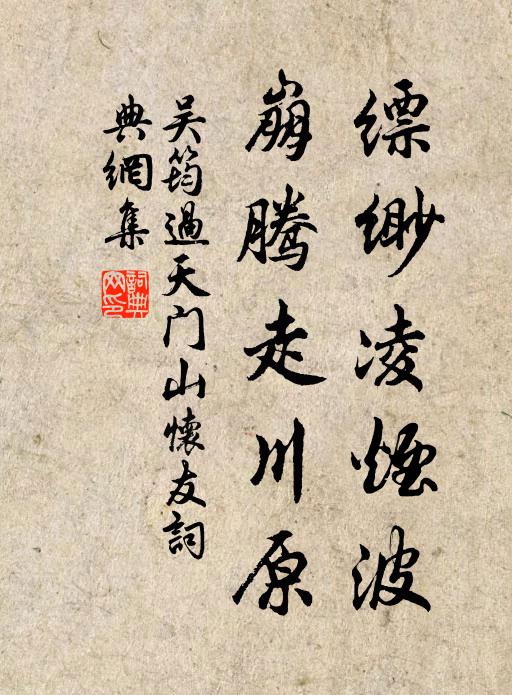 缥缈凌煙波
崩腾走川原
吴筠過天门山懷友詞
典網集
詞典網印